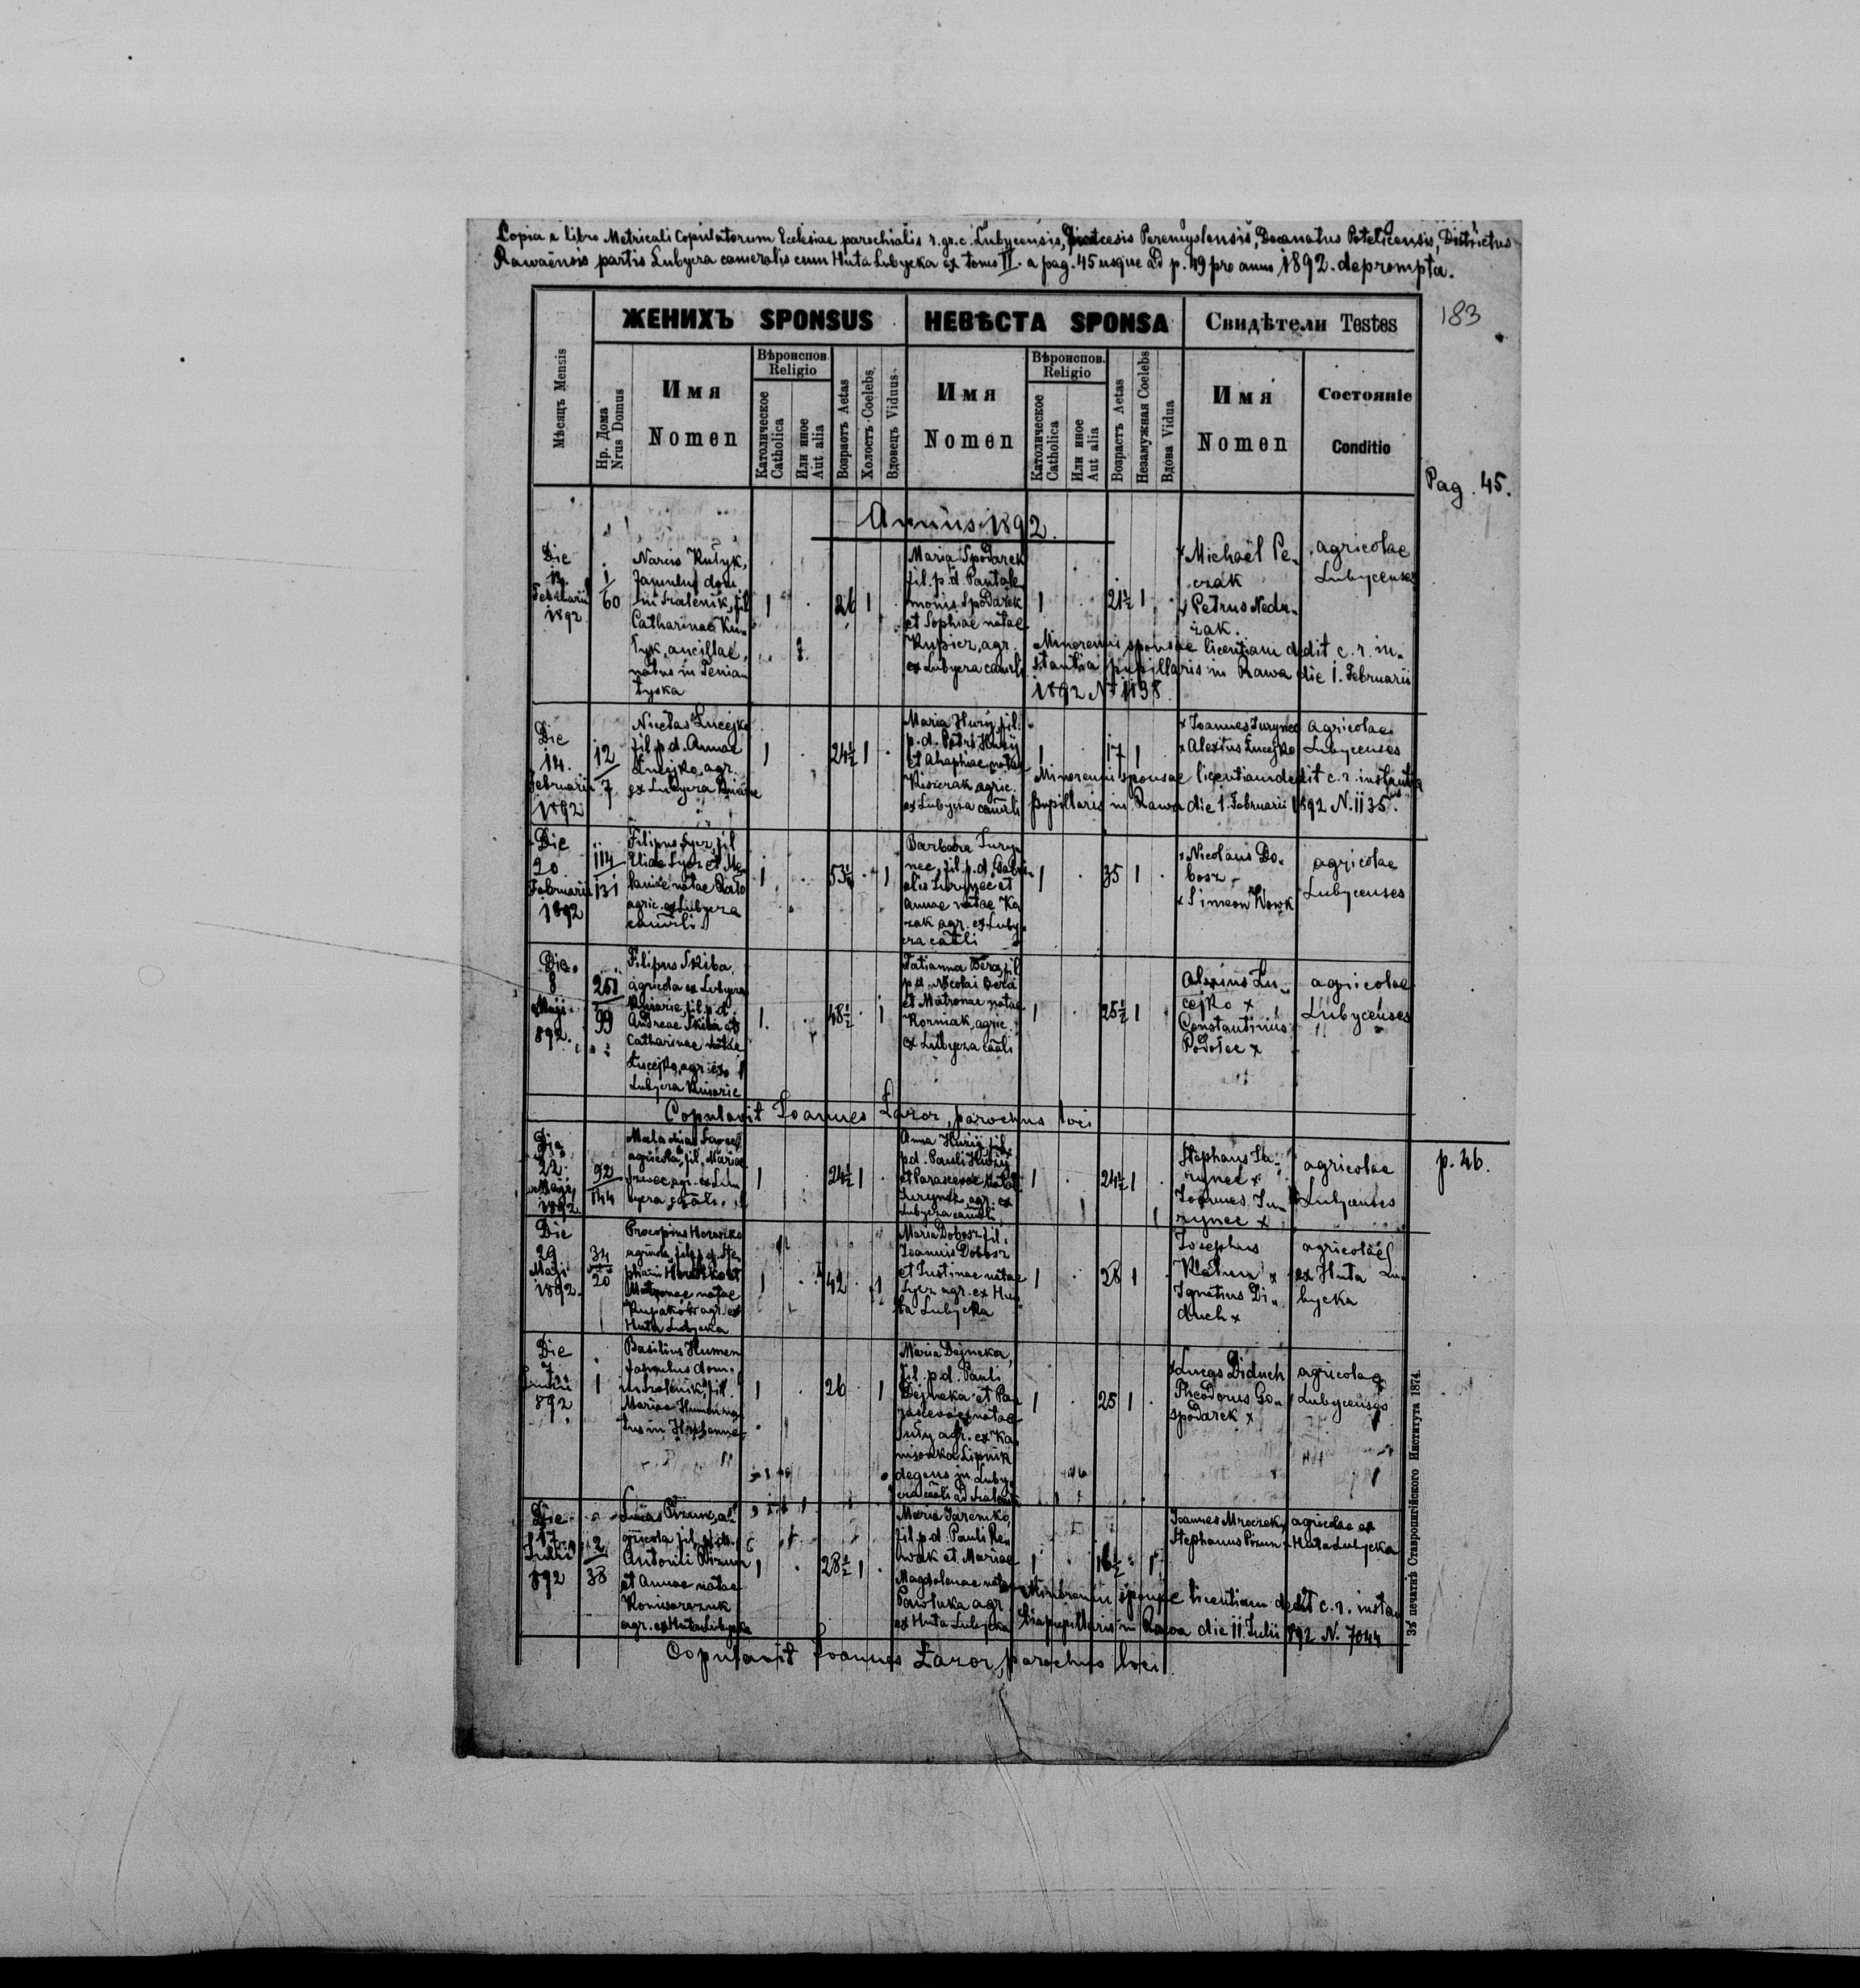 Copia e libro Metricali Copulatorum Ecclesiae parochialis r. gr. c. Lubycensis, Dioecesis Peremyslensis, Decanatus Potelicensis, Districtus
Rawaënsis partis Lubycra cameralis cum Huta Lubycka ex tomo II. a pag. 45 usque ad p. 49 pro anno 1892. deprompta.
183
ЖЕНИХЪ SPONSUS
НЕВѢСТА SPONSA
Свидѣтели Testes
Мѣсяцъ Mensis
Нр. Дома
Nrus Domus
Имя
Nomen
Вѣроиспов.
Religio
Католическое
Catholica
Или иное
Aut alia
Возрастъ Aetas
Холостъ Coelebs
Вдовецъ Viduus
Имя
Nomen
Вѣроиспов.
Religio
Католическое
Catholica
Или иное
Aut alia
Возрастъ Aetas
Незамужная Coelebs
Вдова Vidua
Имя
Nomen
Состояніе
Conditio
Pag. 45.
Annus 1892.
Die
Februarii
1892
1
60
Narcis Kutyk,
famulus dom.
in Szalenik, fil.
Catharinae Ku-
tyk, ancillae,
natus in Tenia-
tyska
1
26
1
Maria Spodarek
fil. p. d. Pantale-
monis Spodarek
et Sophiae natae
Kupicz, agr.
ex Lubycra camrli
1
21½
1
x Michaël Pe-
czak
x Petrus Nedu-
żak.
agricolae
Lubycenses
Minorenni sponsae licentiam dedit c. r. in-
stantia pupillaris in Rawa die 1. Februarii
1892 N. 1138.
Die
14.
Februarii
1892
12
7
Nicetas Łucejko
fil. p. d. Annae
Łucejko, agr.
ex Lubycra Kniazie
1
24½
1
Maria Huzij fil.
p. d. Petri Huzij
et Ahaphiae natae
agric.
ex Lubycra camrli
1
17
1
x Ioannes Iurynec
x Alexius Łucejko
agricolae
Lubycenses
Minorenni sponsae licentiam dedit c. r. instantia
pupillaris in Rawa die 1. Februarii 1892 N. 1135.
Die
20.
Februarii
1892
114
131
Filipus Łycz, fil
Eliae Łycz et Me-
laniae natae
agric. ex Lubycra
camrli
1
53½
1
Barbara Iury-
nec, fil. p. d. Gabri-
elis Iurynec et
Annae natae Ka
zak agr. ex Luby-
cra cäali
1
35
1
x Nicolaus Do-
bosz
x Simeon Wowk
agricolae
Lubycenses
Die
8
Maji
892.
251
99
Filipus Skiba
agricola ex Lubycra
Kniazie, fil. p. d.
Andreae Skiba et
Catharinae natae
Łucejko, agr. ex
Lubycra Kniazie
1
48½
1
Tatianna Bera, fil
p. d. Nicolai Bera
et Matronae natae
Korniak, agric.
ex Lubycra cäali
1
25½
1
Alexius Łu-
cejko x
Constantinus
Podolec x
agricolae
Lubycenses
Copulavit Ioannes Łazor, parochus loci
p. 46.
Die
22.
Maji
1892.
92
144
agricola, fil. Mariae
agr. ex Lu-
bycra cäali.
1
24½
1
Anna Huzij, fil.
p. d. Pauli Huzij
et Parascevae natae
Iurynec, agr. ex
Lubycra camrli
1
24½
1
Stephanus Iu-
rynec x
Ioannes Iu-
rynec x
agricolae
Lubycenses
Die
29
Maji
1892.
34
20
Procopius
agricola, fil. p. d. Ste-
phani et
Matronae natae
agr. ex
Huta Lubycka
1
42
1
Maria Dobosz fil.
Ioannis Dobosz
et Iustinae natae
Łycz agr. ex Hu-
ta Lubycka
1
28
1
Iosephus
x
Ignatius Di-
duch x
agricolae
ex Huta Lu-
bycka
Die
7.
892
1
Basilius Humen
famulus dom.
in Szalenik, fil.
Mariae Humen na-
tus in Hrebenne
1
26
1
Maria Dejneka,
fil. p. d. Pauli
Dejneka et Pa-
rascevae natae
agr. ex Ka-
mionka Lipnik
degens in Luby-
cra cäali ad Szalenik
1
25
1
x Lucas Diduch
Theodorus Go-
spodarek x
agricolae
Lubycenses
Die
17.
892
2
38
Lucas Pizun, a-
gricola, fil. p. d.
Antonii Pizun
et Annae natae
Koniwarczuk
agr. ex Huta Lubycka
1
28½
1
Maria Jaremko,
fil. p. d. Pauli
et Mariae
Magdalenae natae
Pawluka agr.
ex Huta Lubycka
1
16½
1
Ioannes Mroczek x
Stephanus Pizun x
agricolae ex
Huta Lubycka
Minorenni sponsae licentiam dedit c. r. instan-
tia pupillaris in Rawa die 11. Iulii 892 N. 7044
Copulavit Ioannes Łazor, parochus loci.
Зъ печатнѣ Ставропигійского Института 1874.